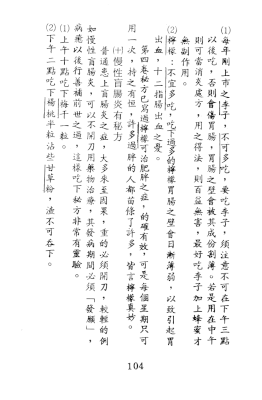 (1)每年剛上市之李子，不可多吃，要吃李子，須注意不可在下午三點
以後吃，否則會傷胃，腸胃之壁會被其成份割薄。若是用在中午
則可當消炎處方，用之得法，則百益無害，最好吃李子加上蜂蜜才
無副作用。
(2)檸檬：不宜多吃，吃下過多的檸檬胃腸之壁會日漸薄弱，以致引起胃
出血，十二指腸出血之憂。
第四卷秘方已寫過檸檬可治肥胖之症，的確有效，可是每個星期只可
用一次，持之有恒，許多過胖的人都苗條了許多，皆言檸檬真妙。
(十)慢性盲腸炎有秘方
普通患上盲腸炎之症，大多來至因果，重的必須開刀，較輕的例
如慢性盲腸炎，可以不開刀用藥物治療，其發病期間必須「發願」，
病癒以後行善補前世之過，這樣吃下秘方非常有靈驗。
(1)上午十點吃下梅干一粒。
(2)下午二點吃下楊桃半粒沾些甘草粉，渣不可吞下。
104